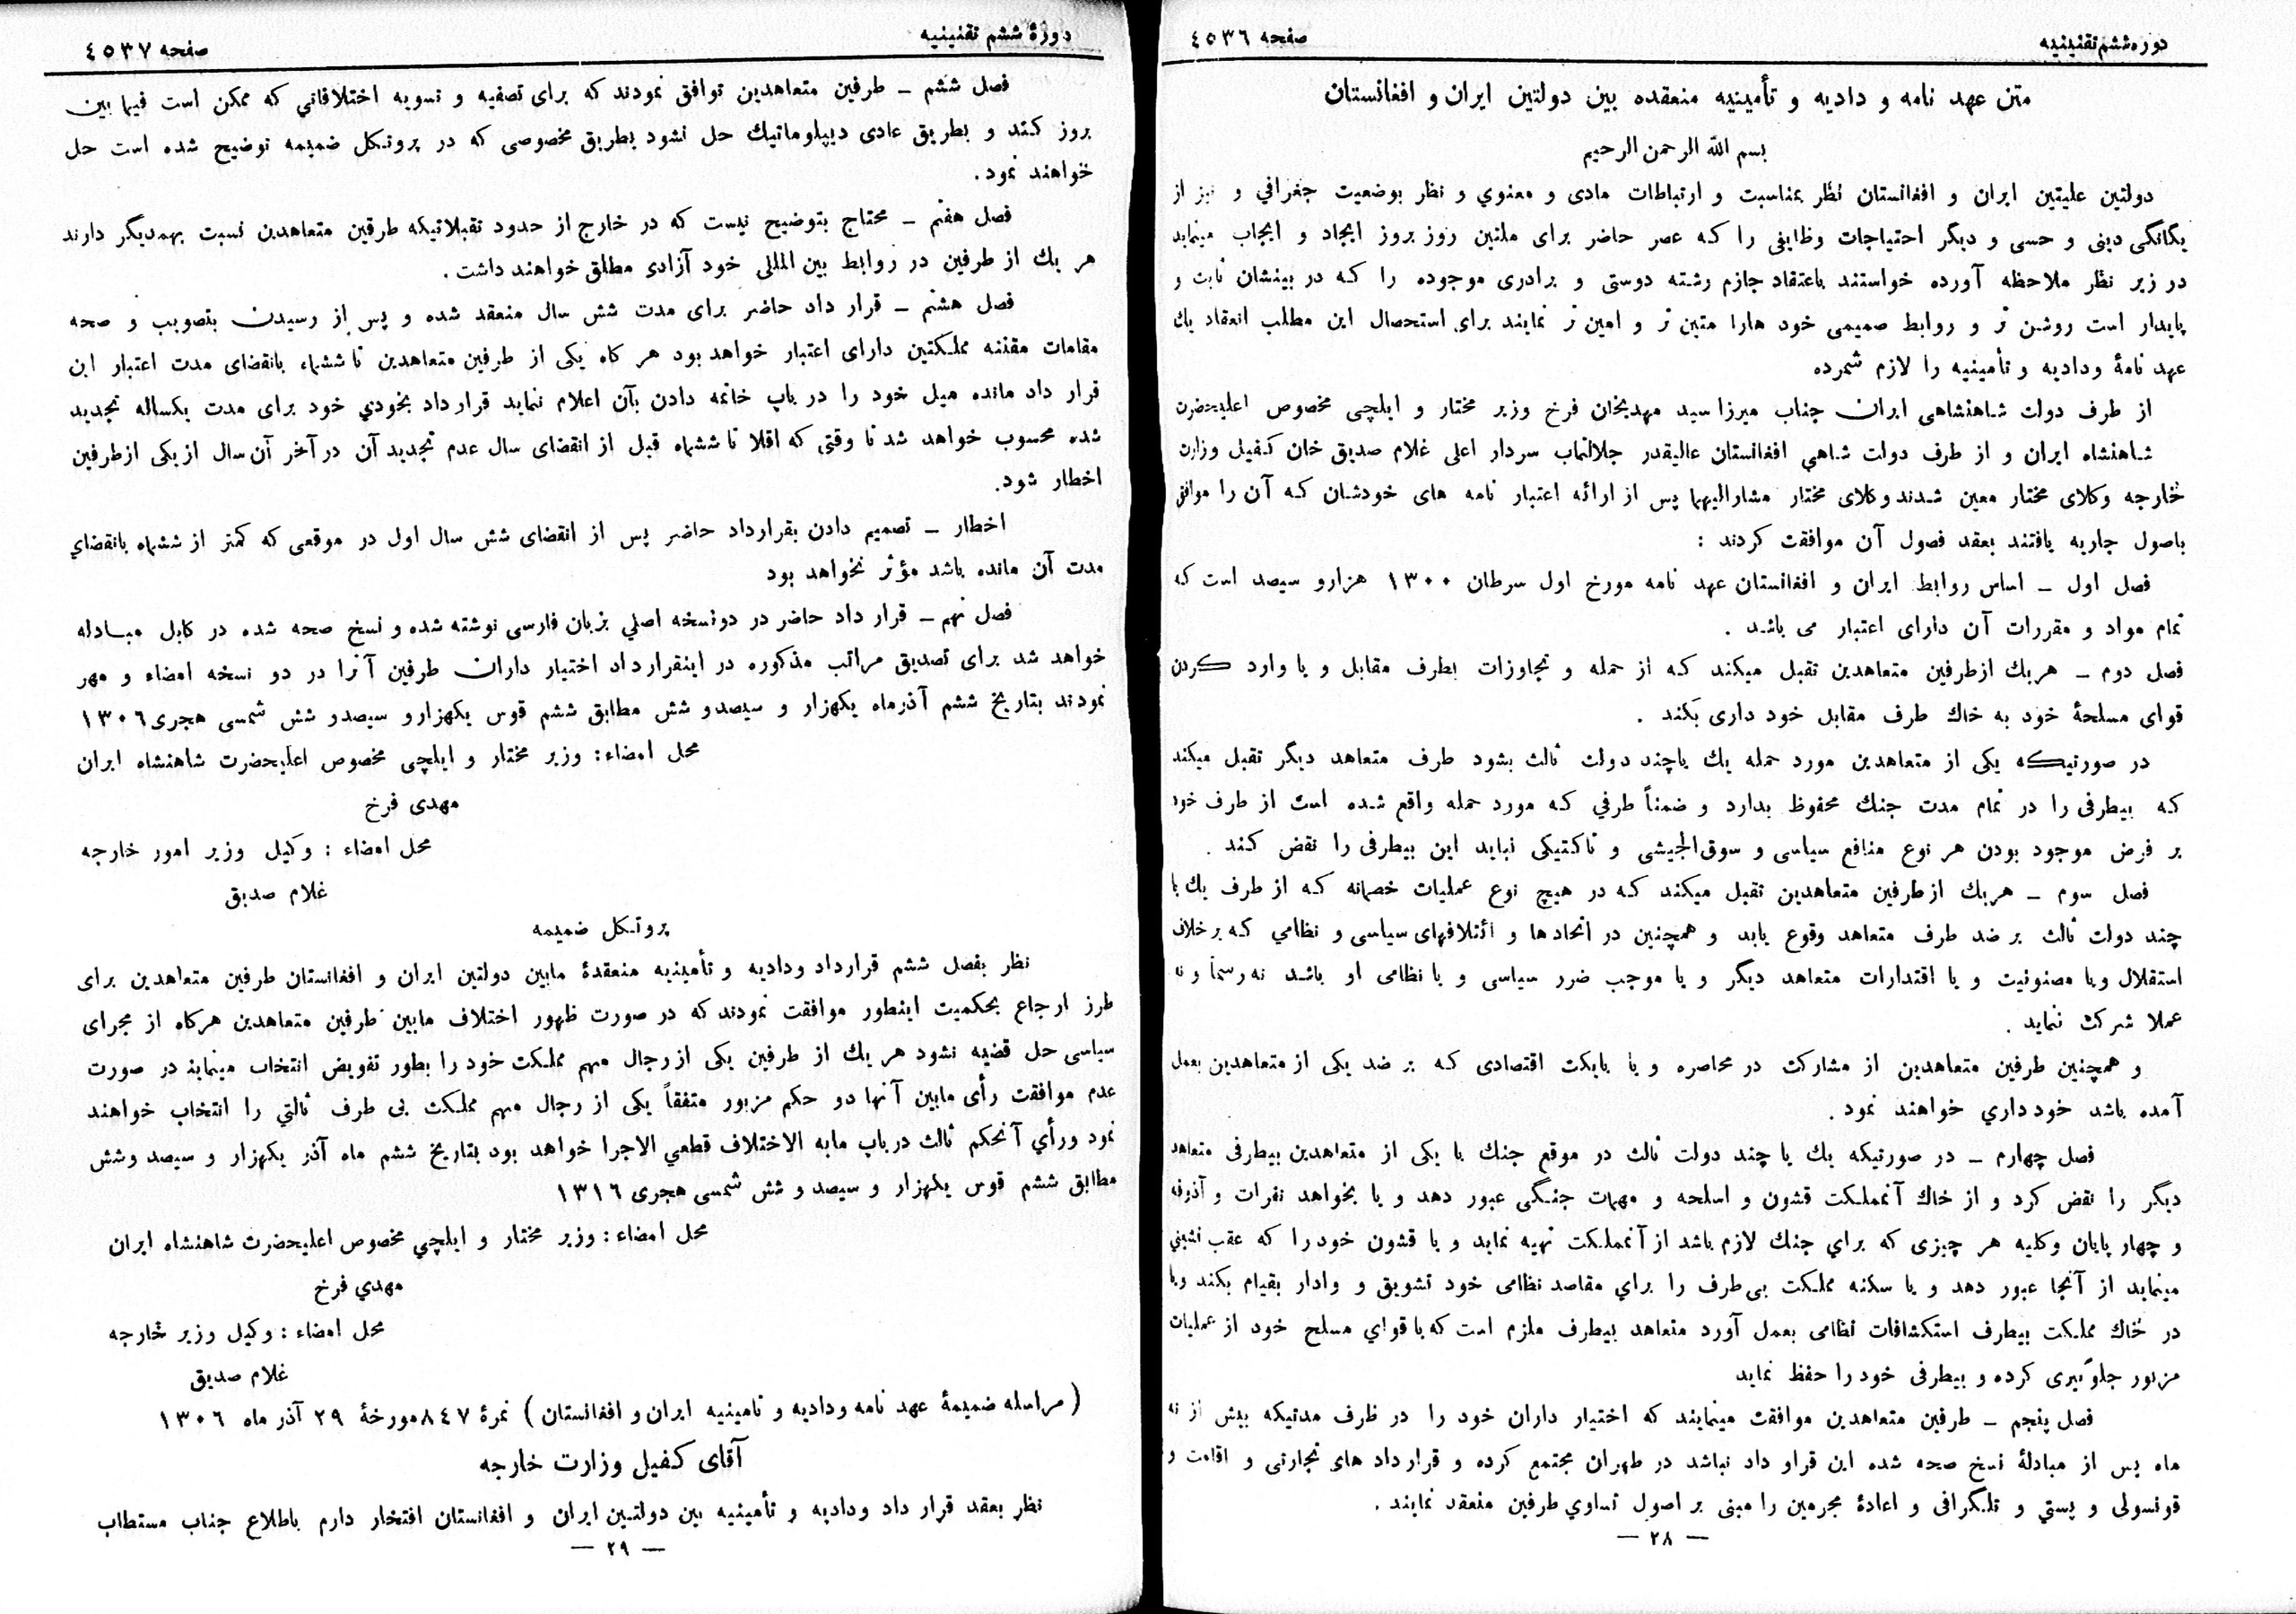 دوره‌ششم‌تقنینیه
صفحه ٤٥٣٦
متن عهد نامه و دادیه و تأمینیه منعقده بین دولتین ایران و افغانستان
بسم الله الرحمن الرحیم
دولتین علیتین ایران و افغانستان نظر بمناسبت و ارتباطات مادی و معنوي و نظر بوضعیت جغرافي و نیز از
یگانگی دینی و حسی و دیگر احتیاجات وظایفی را که عصر حاضر برای ملتین روز بروز ایجاد و ایجاب مینماید
در زیر نظر ملاحظه آورده خواستند باعتقاد جازم رشته دوستی و برادری موجوده را که در بینشان ثابت و
پایدار است روشن تر و روابط صمیمی خود هارا متین تر و امین تر نمایند برای استحصال این مطلب انعقاد یك
عهد نامهٔ ودادیه و تأمینیه را لازم شمرده
از طرف دولت شاهنشاهی ایران جناب میرزا سید مهدیخان فرخ وزیر مختار و ایلچی مخصوص اعلیحضرت
شاهنشاه ایران و از طرف دولت شاهي افغانستان عالیقدر جلالتماب سردار اعلی غلام صدیق خان کفیل وزارت
خارجه وکلای مختار معین شدند وکلای مختار مشارالیهما پس از ارائه اعتبار نامه های خودشان که آن را موافق
باصول جاریه یافتند بعقد فصول آن موافقت کردند :
فصل اول – اساس روابط ایران و افغانستان عهد نامه مورخ اول سرطان ١٣٠٠ هزارو سیصد است که
تمام مواد و مقررات آن دارای اعتبار می باشد .
فصل دوم – هریك ازطرفین متعاهدین تقبل میکند که از حمله و تجاوزات بطرف مقابل و یا وارد کردن
قوای مسلحهٔ خود به خاك طرف مقابل خود داری بکند .
در صورتیکه یکی از متعاهدین مورد حمله یك یاچند دولت ثالث بشود طرف متعاهد دیگر تقبل میکند
که بیطرفی را در تمام مدت جنك محفوظ بدارد و ضمناً طرفي که مورد حمله واقع شده است از طرف خود
بر فرض موجود بودن هر نوع منافع سیاسی و سوق‌الجیشی و تاکتیکی نباید این بیطرفی را نقض کند .
فصل سوم – هریك ازطرفین متعاهدین تقبل میکند که در هیچ نوع عملیات خصمانه که از طرف یك یا
چند دولت ثالث بر ضد طرف متعاهد وقوع یابد و همچنین در اتحادها و ائتلافهای سیاسی و نظامي که برخلاف
استقلال ویا مصئونیت و یا اقتدارات متعاهد دیگر و یا موجب ضرر سیاسی و یا نظامی او باشد نه رسماً و نه
عملا شرکت نماید .
و همچنین طرفین متعاهدین از مشارکت در محاصره و یا بایکت اقتصادی که بر ضد یکی از متعاهدین بعمل
آمده باشد خود داري خواهند نمود .
فصل چهارم – در صورتیکه یك یا چند دولت ثالث در موقع جنك با یکی از متعاهدین بیطرفی متعاهد
دیگر را نقض کرد و از خاك آنمملکت قشون و اسلحه و مهمات جنگی عبور دهد و یا بخواهد نفرات و آذوقه
و چهار پایان وکلیه هر چیزی که براي جنك لازم باشد از آنمملکت تهیه نماید و یا قشون خود را که عقب نشیني
مینماید از آنجا عبور دهد و یا سکنه مملکت بی طرف را براي مقاصد نظامی خود تشویق و وادار بقیام بکند ویا
در خاك مملکت بیطرف استکشافات نظامی بعمل آورد متعاهد بیطرف ملزم است که با قوای مسلح خود از عملیات
مزبور جلوگیری کرده و بیطرفی خود را حفظ نماید
فصل پنجم – طرفین متعاهدین موافقت مینمایند که اختیار داران خود را در ظرف مدتیکه بیش از نه
ماه پس از مبادلهٔ نسخ صحه شده این قرار داد نباشد در طهران مجتمع کرده و قرارداد های تجارتی و اقامت و
قونسولی و پستي و تلگرافی و اعادهٔ مجرمین را مبنی بر اصول تساوي طرفین منعقد نمایند .
— ٢٨ —
دورهٔ ششم تقنینیه
صفحه ٤٥٣٧
فصل ششم – طرفین متعاهدین توافق نمودند که برای تصفیه و تسویه اختلافاتي که ممکن است فیما بین
بروز کند و بطریق عادی دیپلوماتیك حل نشود بطریق مخصوصی که در پروتکل ضمیمه توضیح شده است حل
خواهند نمود .
فصل هفتم – محتاج بتوضیح نیست که در خارج از حدود تقبلاتیکه طرفین متعاهدین نسبت بهمدیگر دارند
هر یك از طرفین در روابط بین المللی خود آزادی مطلق خواهند داشت .
فصل هشتم – قرار داد حاضر برای مدت شش سال منعقد شده و پس از رسیدن بتصویب و صحه
مقامات مقننه مملکتین دارای اعتبار خواهد بود هر کاه یکی از طرفین متعاهدین تا ششماه بانقضای مدت اعتبار این
قرار داد مانده میل خود را در باب خاتمه دادن بآن اعلام ننماید قرارداد بخودي خود برای مدت یکساله تجدید
شده محسوب خواهد شد تا وقتی که اقلا تا ششماه قبل از انقضای سال عدم تجدید آن در آخر آن سال از یکی ازطرفین
اخطار شود.
اخطار – تصمیم دادن بقرارداد حاضر پس از انقضای شش سال اول در موقعی که کمتر از ششماه بانقضاي
مدت آن مانده باشد مؤثر نخواهد بود
فصل نهم – قرار داد حاضر در دو نسخه اصلي بزبان فارسی نوشته شده و نسخ صحه شده در کابل مبادله
خواهد شد برای تصدیق مراتب مذکوره در اینقرارداد اختیار داران طرفین آنرا در دو نسخه امضاء و مهر
نمودند بتاریخ ششم آذرماه یکهزار و سیصدو شش مطابق ششم قوس یکهزارو سیصدو شش شمسی هجری ١٣٠٦
محل امضاء: وزیر مختار و ایلچی مخصوص اعلیحضرت شاهنشاه ایران
مهدی فرخ
محل امضاء : وکیل وزیر امور خارجه
غلام صدیق
پروتکل ضمیمه
نظر بفصل ششم قرارداد ودادیه و تأمینیه منعقدهٔ مابین دولتین ایران و افغانستان طرفین متعاهدین برای
طرز ارجاع بحکمیت اینطور موافقت نمودند که در صورت ظهور اختلاف مابین طرفین متعاهدین هرکاه از مجرای
سیاسی حل قضیه نشود هر یك از طرفین یکی از رجال مهم مملکت خود را بطور تفویض انتخاب مینماید در صورت
عدم موافقت رأی مابین آنها دو حکم مزبور متفقاً یکی از رجال مهم مملکت بی طرف ثالثي را انتخاب خواهند
نمود ورأي آنحکم ثالث درباب مابه الاختلاف قطعي الاجرا خواهد بود بتاریخ ششم ماه آذر یکهزار و سیصد وشش
مطابق ششم قوس یکهزار و سیصد و شش شمسی هجری ١٣١٦
محل امضاء: وزیر مختار و ایلچي مخصوص اعلیحضرت شاهنشاه ایران
مهدي فرخ
محل امضاء : وکیل وزیر خارجه
غلام صدیق
(مراسله ضمیمهٔ عهد نامه ودادیه و تامینیه ایران و افغانستان) نمرهٔ ٨٤٧مورخهٔ ٢٩ آذر ماه ١٣٠٦
آقای کفیل وزارت خارجه
نظر بعقد قرار داد ودادیه و تأمینیه بین دولتین ایران و افغانستان افتخار دارم باطلاع جناب مستطاب
— ٢٩ —